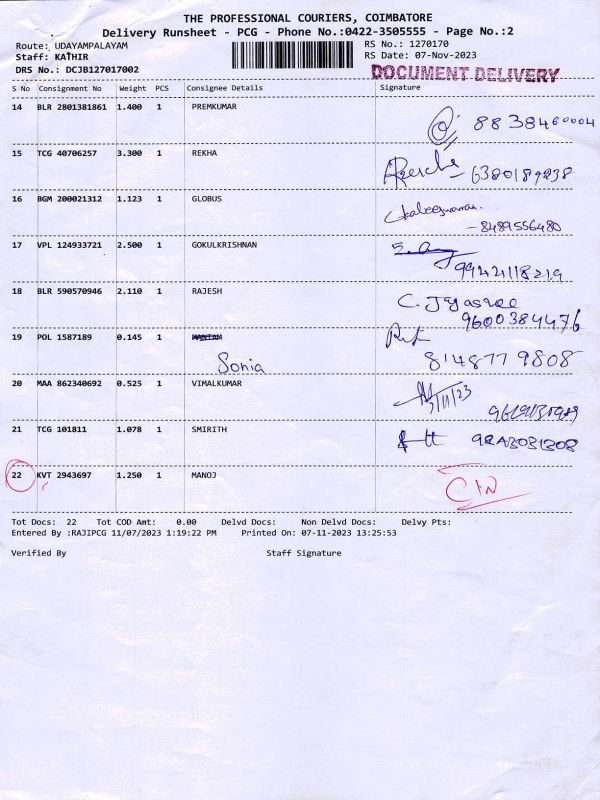 THE PROFESSIONAL COURIERS, COIMBATORE
Delivery Runsheet - PCG - Phone No.:0422-3505555 - Page No.:2
Route: UDAYAMPALAYAM RS No.: 1270170
Staff: KATHIR RS Date: 07-Nov-2023
DRS No.: DCJB127017002 DOCUMENT DELIVERY
S No Consignment No Weight PCS Consignee Details Signature
14 BLR 2801381861 1.400 1 PREMKUMAR
8838460004
15 TCG 40706257 3.300 1 REKHA
6380189238
16 BGM 200021312 1.123 1 GLOBUS
- 8489556480
17 VPL 124933721 2.500 1 GOKULKRISHNAN
9942118219
18 BLR 590570946 2.110 1 RAJESH
C. Jyasree
9600384476
19 POL 1587189 0.145 1
Sonia 8148779808
20 MAA 862340692 0.525 1 VIMALKUMAR
7/11/23
21 TCG 101811 1.078 1 SMIRITH
22 KVT 2943697 1.250 1 MANOJ
Tot Docs: 22 Tot COD Amt: 0.00 Delvd Docs: Non Delvd Docs: Delvy Pts:
Entered By :RAJIPCG 11/07/2023 1:19:22 PM Printed On: 07-11-2023 13:25:53
Verified By Staff Signature